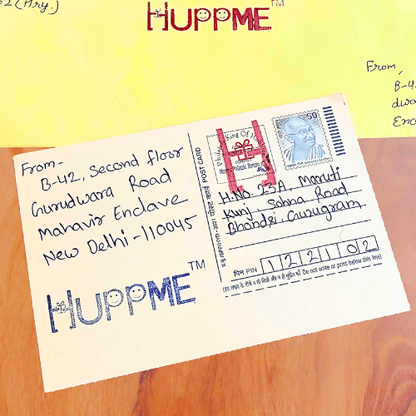 2 (Hry.)
HUPPME TM
From,
B-4
dwa
Enc
From-
B-42, Second floor
Gurudwara Road
Mahavir Enclave
New Delhi-110045
HUPPME TM
POST CARD
50
H.NO. 23A, Maruti
Kunj Sohna Road
Bhondsi, Gurugram
पिन PIN 122102
Do not write or print below this line)